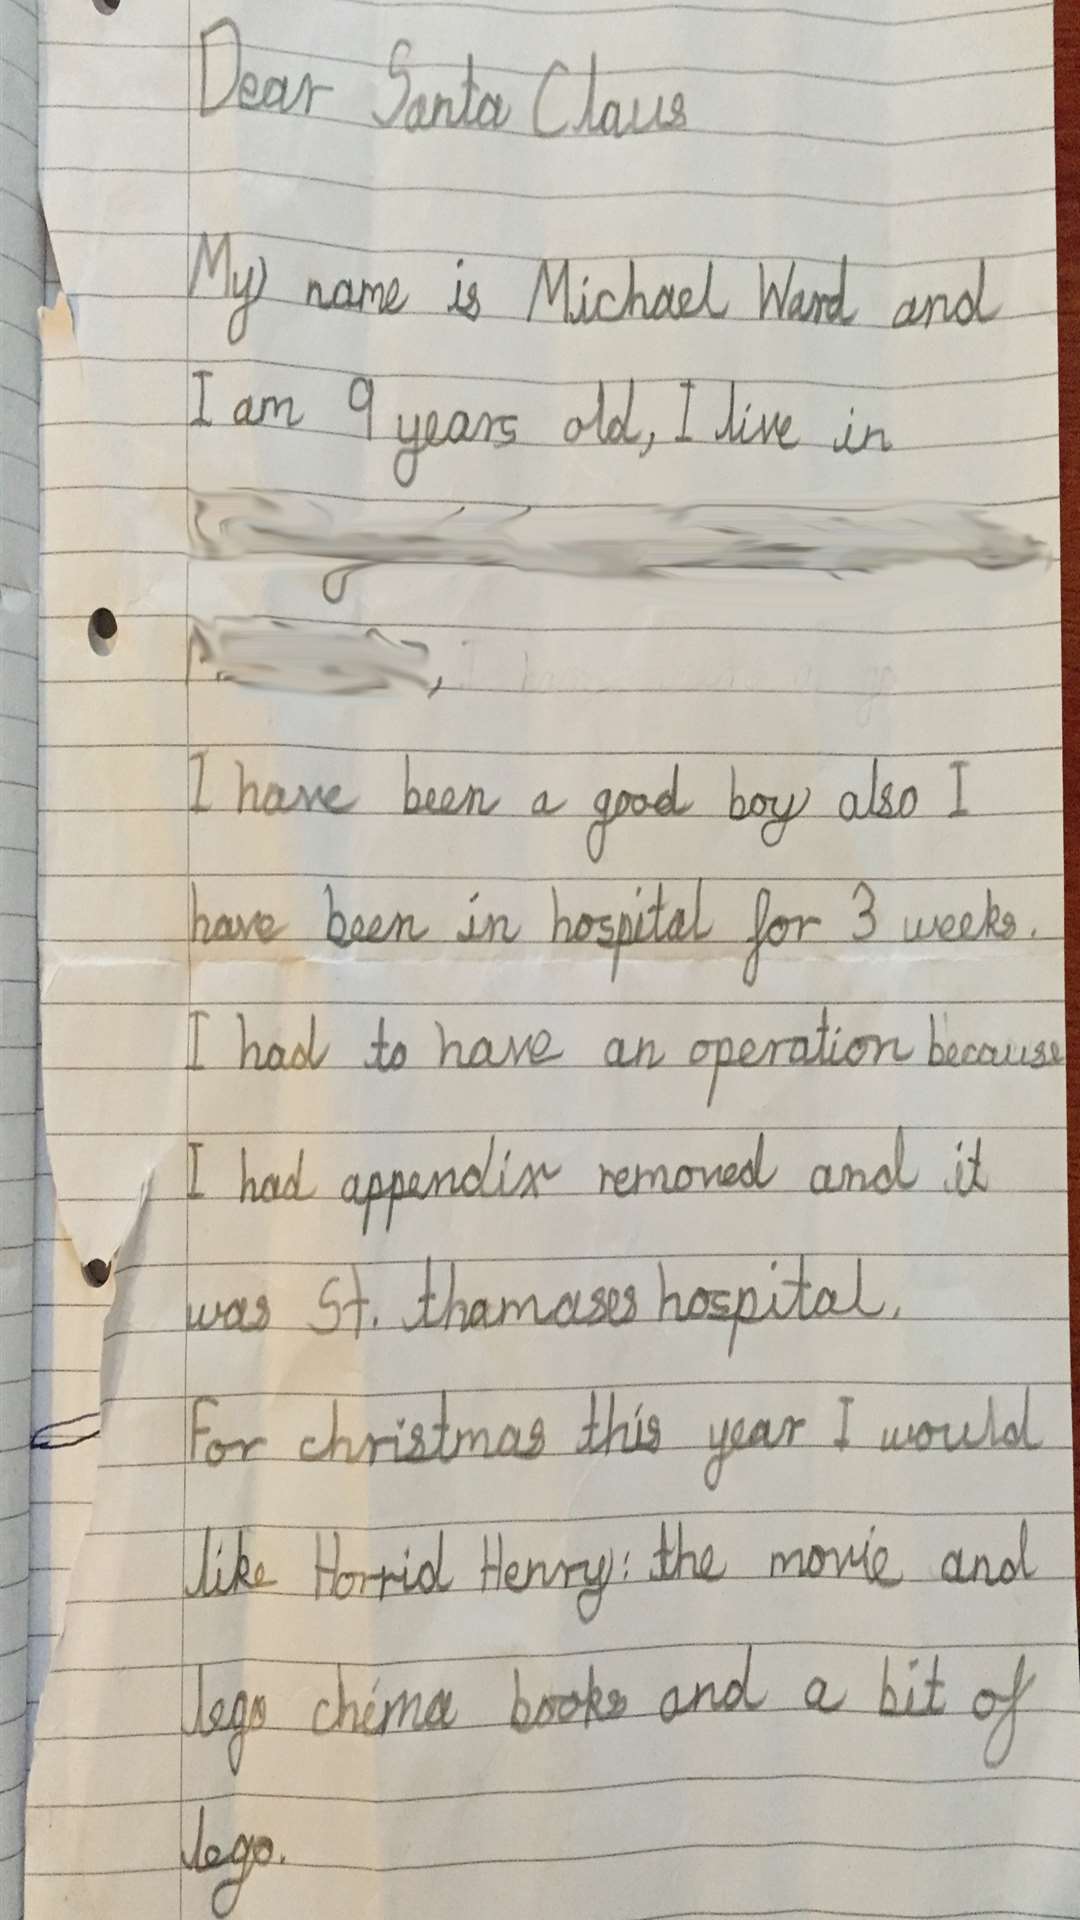 Dear Santa Claus
My name is Michael Ward and
I am 9 years old, I live in
I have been a good boy also I
have been in hospital for 3 weeks.
I had to have an operation because
I had appendix removed and it
was St. thamases hospital.
For christmas this year I would
like Horrid Henry: the movie and
lego chima books and a bit of
lego.